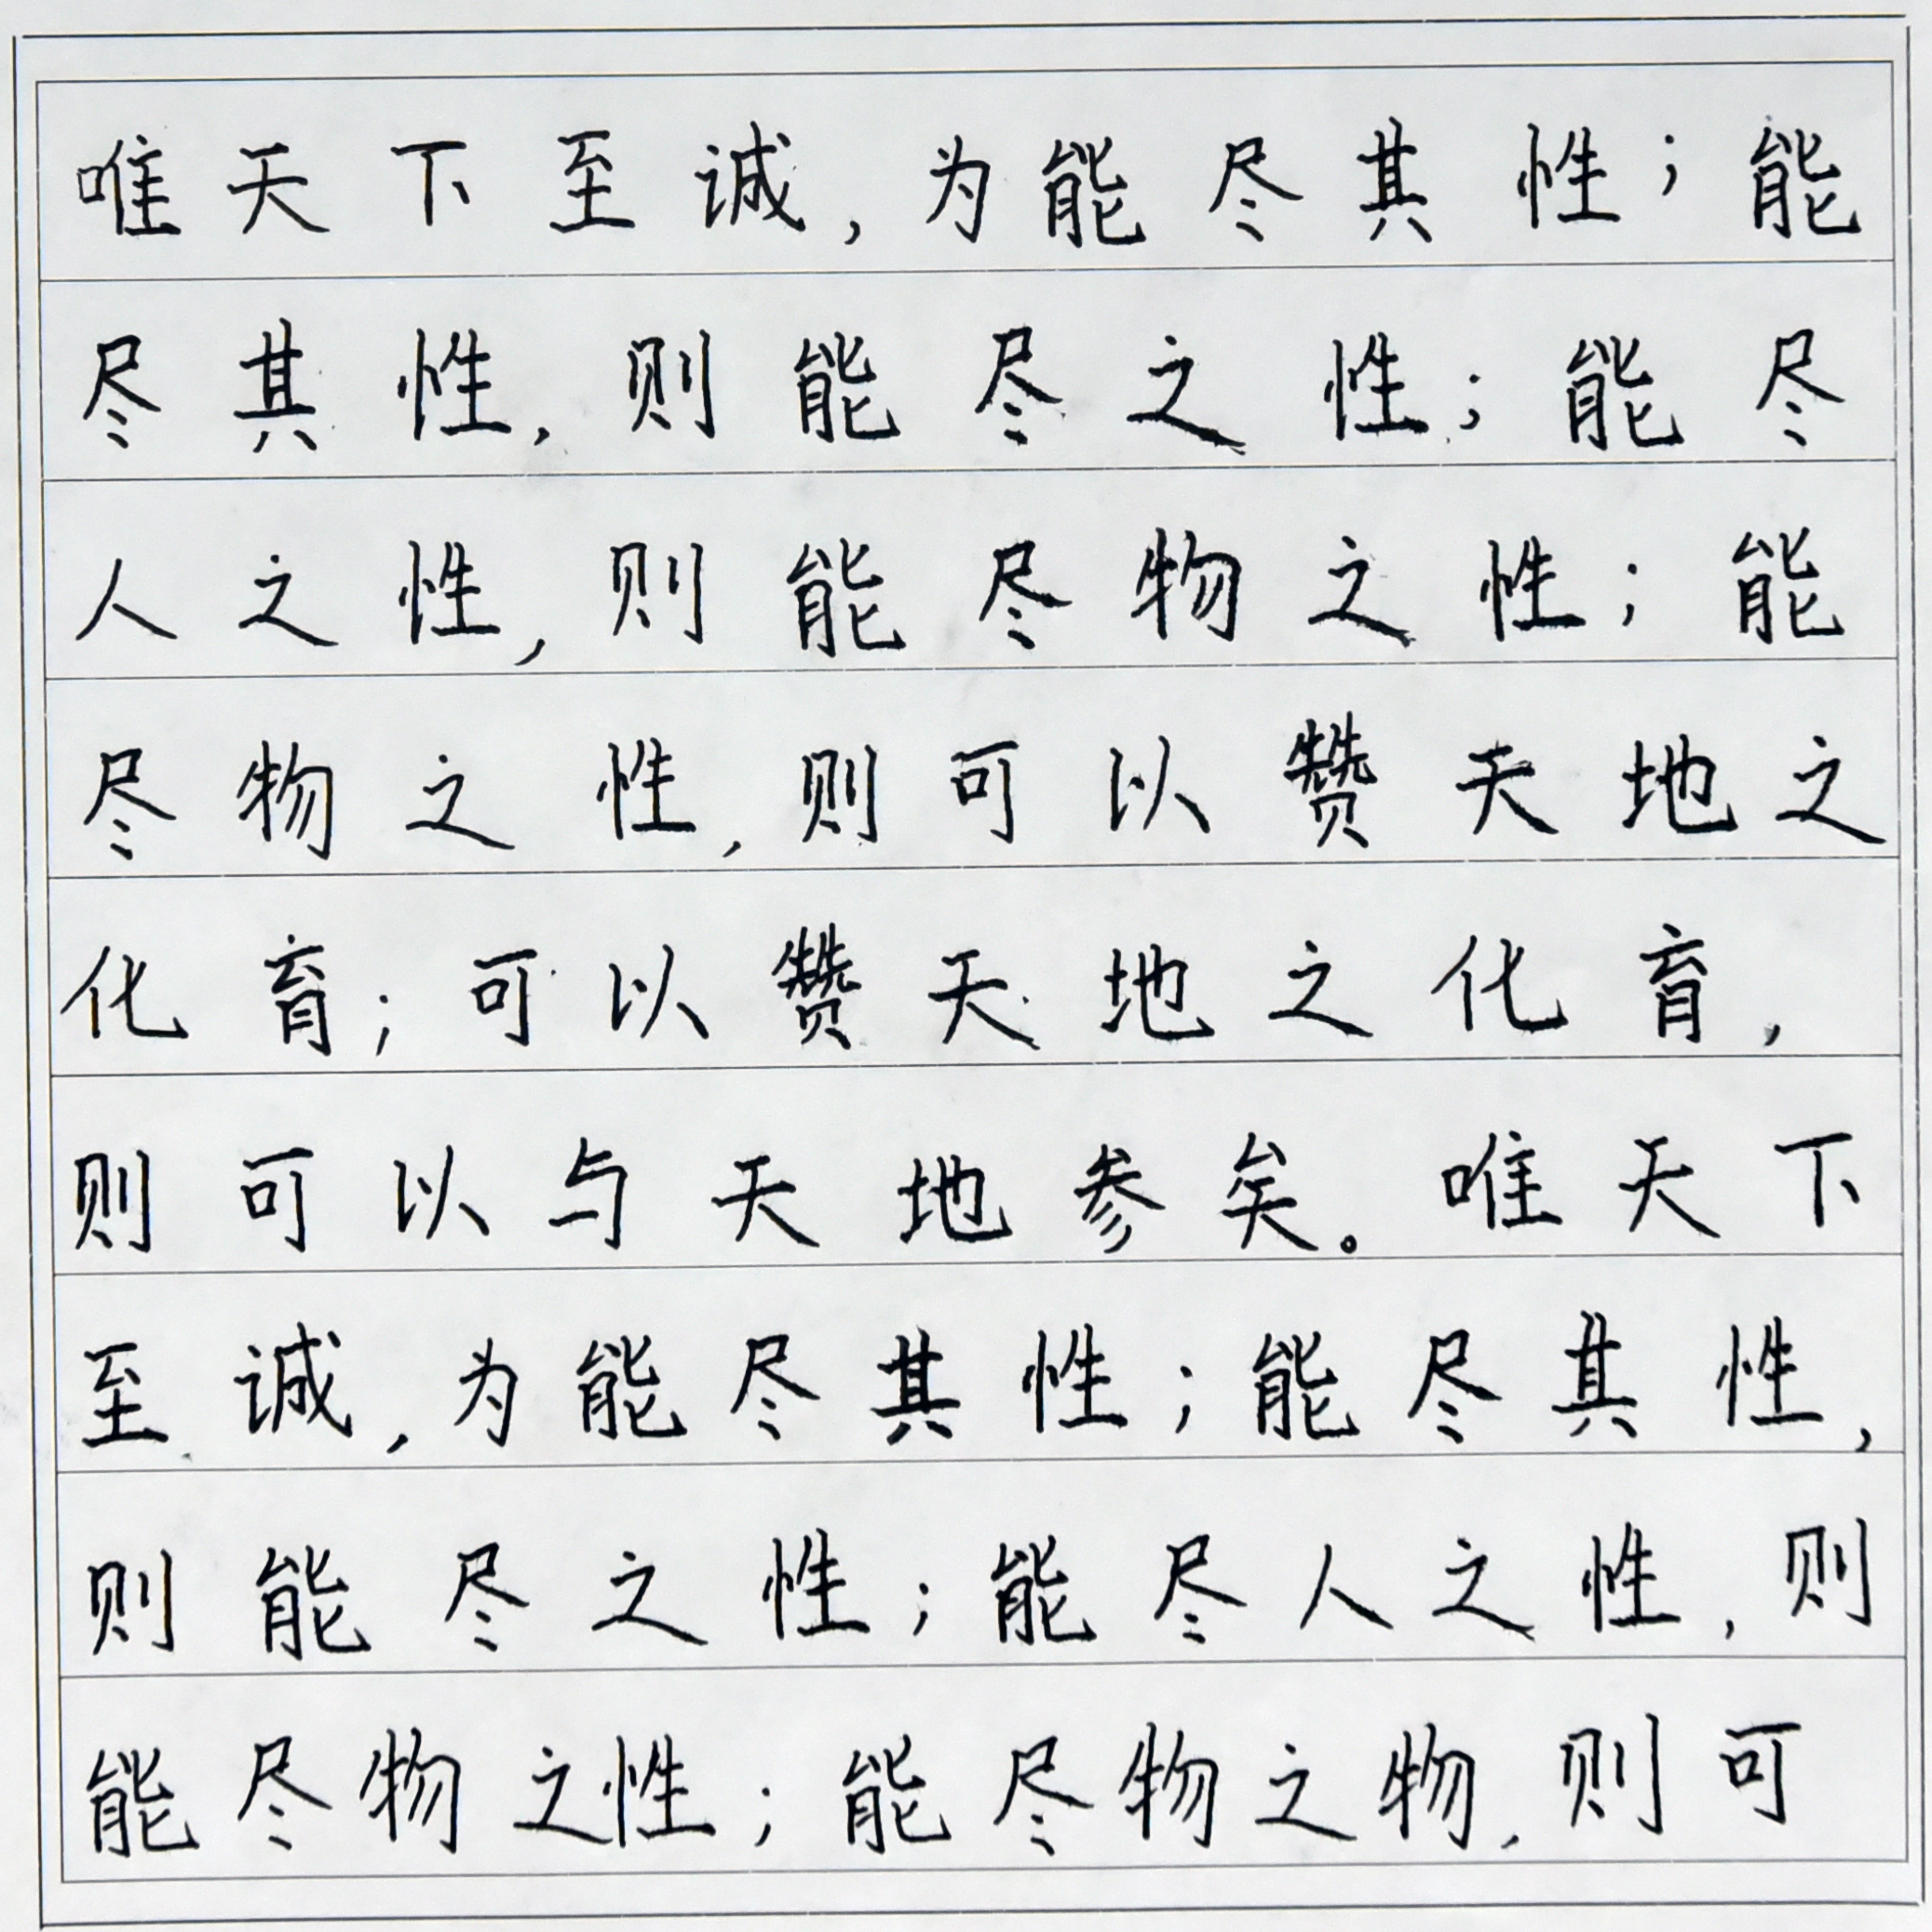 唯天下至诚,为能尽其性;能
尽其性,则能尽之性;能尽
人之性,则能尽物之性;能
尽物之性,则可以赞天地之
化育;可以赞天地之化育,
则可以与天地参矣。唯天下
至诚,为能尽其性;能尽其性,
则能尽之性;能尽人之性,则
能尽物之性;能尽物之物,则可